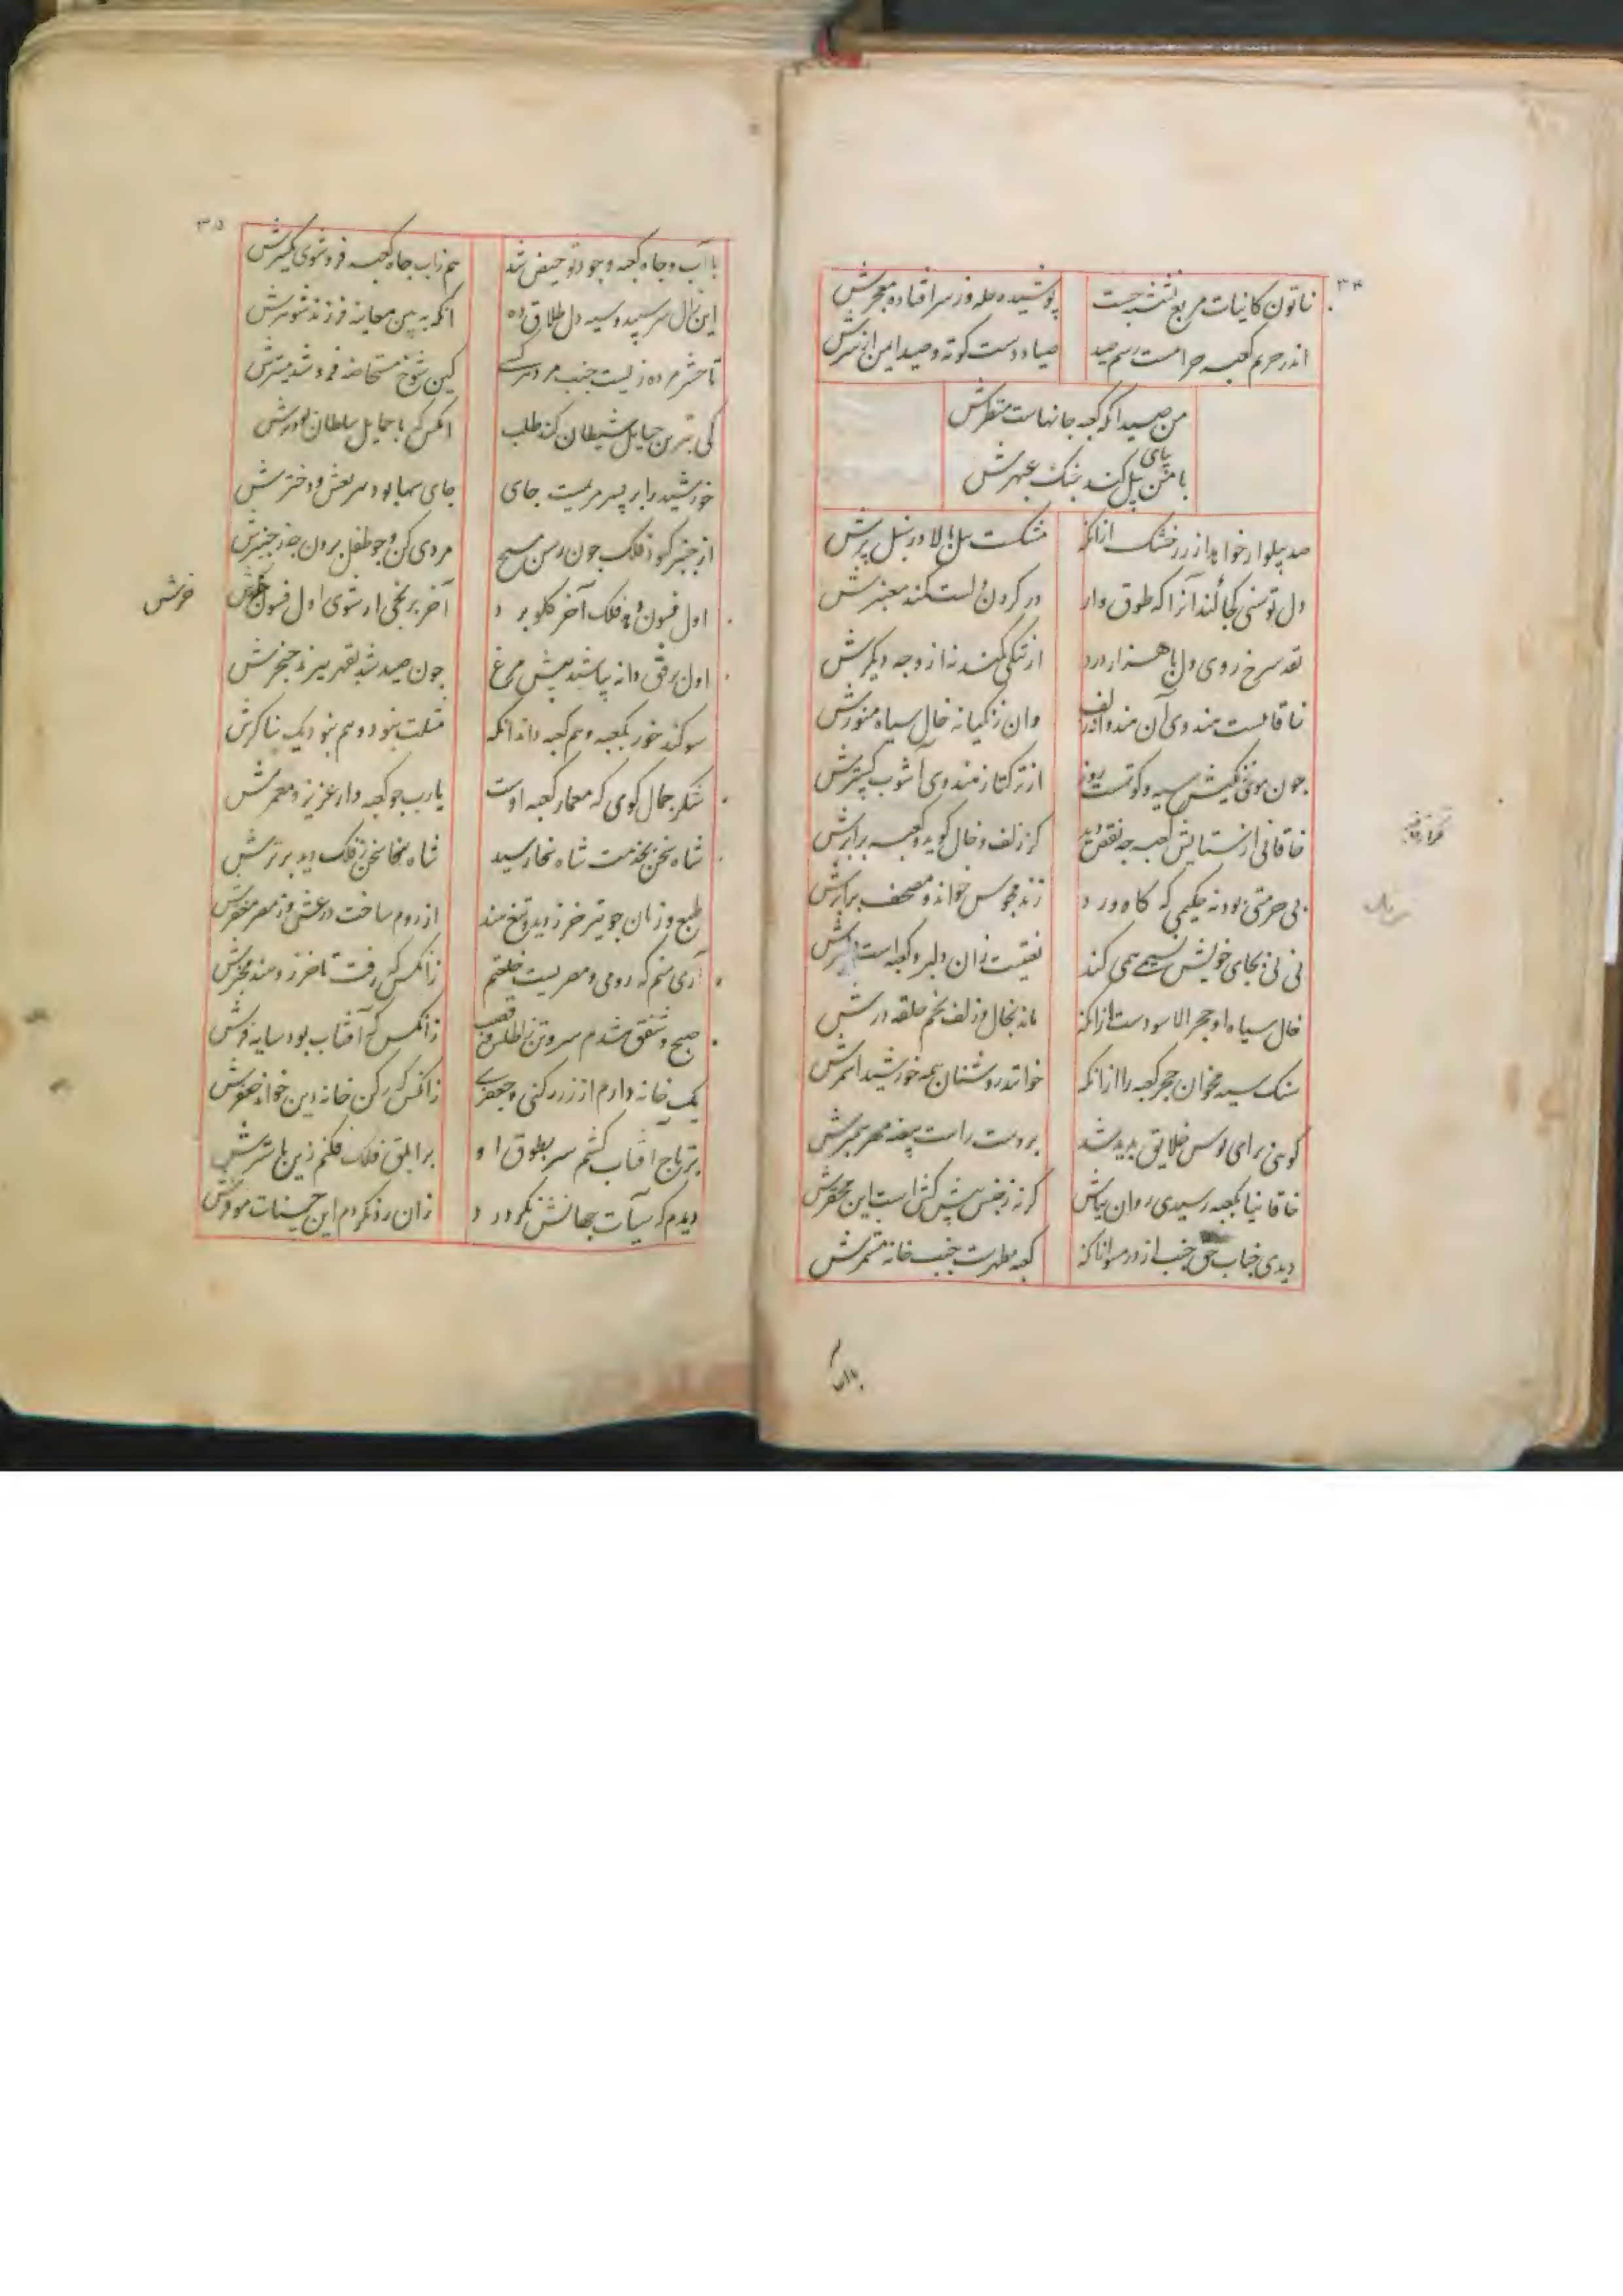 ۳۴
خاتون کاینات مربع نشسته جست پوشیده حله وز سر افتاده معجرش
اندر حریم کعبه حرامست رسم صید صیاد دست کوته و صید ایمن از شرش
من صید آنکه کعبه جانهاست منظرش
با من بپای پیل کند جنک عبهرش
صد پیلوار خواهد از زر خشک ازانکه مشکست پیل بالا در سنبل ترش
دل توسنی کجا کند آنرا که طوق وار در کردن دلست کمند معنبرش
نقد سرخ روی دل با هزار درد از تنکی کمند نه از وجه دیکرش
خاقانیست هندوی آن هندوانه زلف وان زنکیانه خال سیاه منورش
چون موی زنکیش سیه و کوتهست روز از ترکتاز هندوی آشوب کسترش
خاقانی از ستایش کعبه چه نقص دید کز زلف و خال کوید و کعبه برابرش
بی حرمتی بود نه حکیمی که کاه ورد زند مجوس خواند و مصحف برابرش
نی نی بجای خویش نسیمی همی کند نقیست زان دلبر و کعبه است دلبرش
خال سیاه او حجر الاسودست ازانکه ماند بخال و زلف بخم حلقه درش
سنک سیه مخوان حجر کعبه را ازانکه خوانند روشنان همه خورشید اسمرش
کوئی برای بوس خلایق پدید شد بر دست راست بیضه مهر پیمبرش
خاقانیا بکعبه رسیدی روان بپاش کرنه ز جنس پیش کش است این محقرش
دیدی جناب حق جنب از در مسوانا که کعبه مطهرست جنب خانه مشمرش
۳۵
با آب و جاه کعبه وجود تو حیض شد هم زاب چاه کعبه فرو شوی یکسرش
این زال سر سپید و سیه دل طلاق ده انکه به بین معاینه فرزند شوهرش
تا حشر مرده زیست جنب مرد هر کسی کین شوخ مستحاضه فرو شد ببسترش
کی بدترین حبایل شیطان کند طلب انکس که با حمایل سلطان بود برش
خورشید را بر پسر مریمست جای جای سها بود بسر نعش و دخترش
از چنبر کبود فلک چون رسن مپیچ مردی کن و چو طفل برون جه ز چنبرش
اول فسون دهد فلک آخر کلو برد آخر برنجی ار شنوی اول فسون خرش
خرش
اول برفق دانه بپاشند پیش مرغ چون صید شد بقهر ببرند حنجرش
سوکند خور بکعبه و هم کعبه داند آنکه مثلت نبود و هم نبود یک ثناکرش
شکر جمال کوی که معمار کعبه اوست یارب چو کعبه دار عزیز و معمرش
شاه سخن بخدمت شاه سخا رسید شاه سخا سخن ز فلک دید برترش
طبع و زبان چو تیر خزر دید و تیغ هند از روم ساخت درعش و ز مصر مغفرش
آری منم که رومی و مصریست خلعتم زانکس که رفت تا خزر و هند مخبرش
صبح و شفق شدم سر و تن ز اطلس و قصب زانکس که آفتاب بود سایه فرش
یک خانه دارم از زر رکنی و جعفری زانکس که رکن خانه دین خواند جعفرش
بر تاج آفتاب کشم سر بطوق او بر ابلق فلک فکنم زین باسترش
دیدم که سیآت جهانش نکرد رد زان رد نکردم این حسنات موفرش